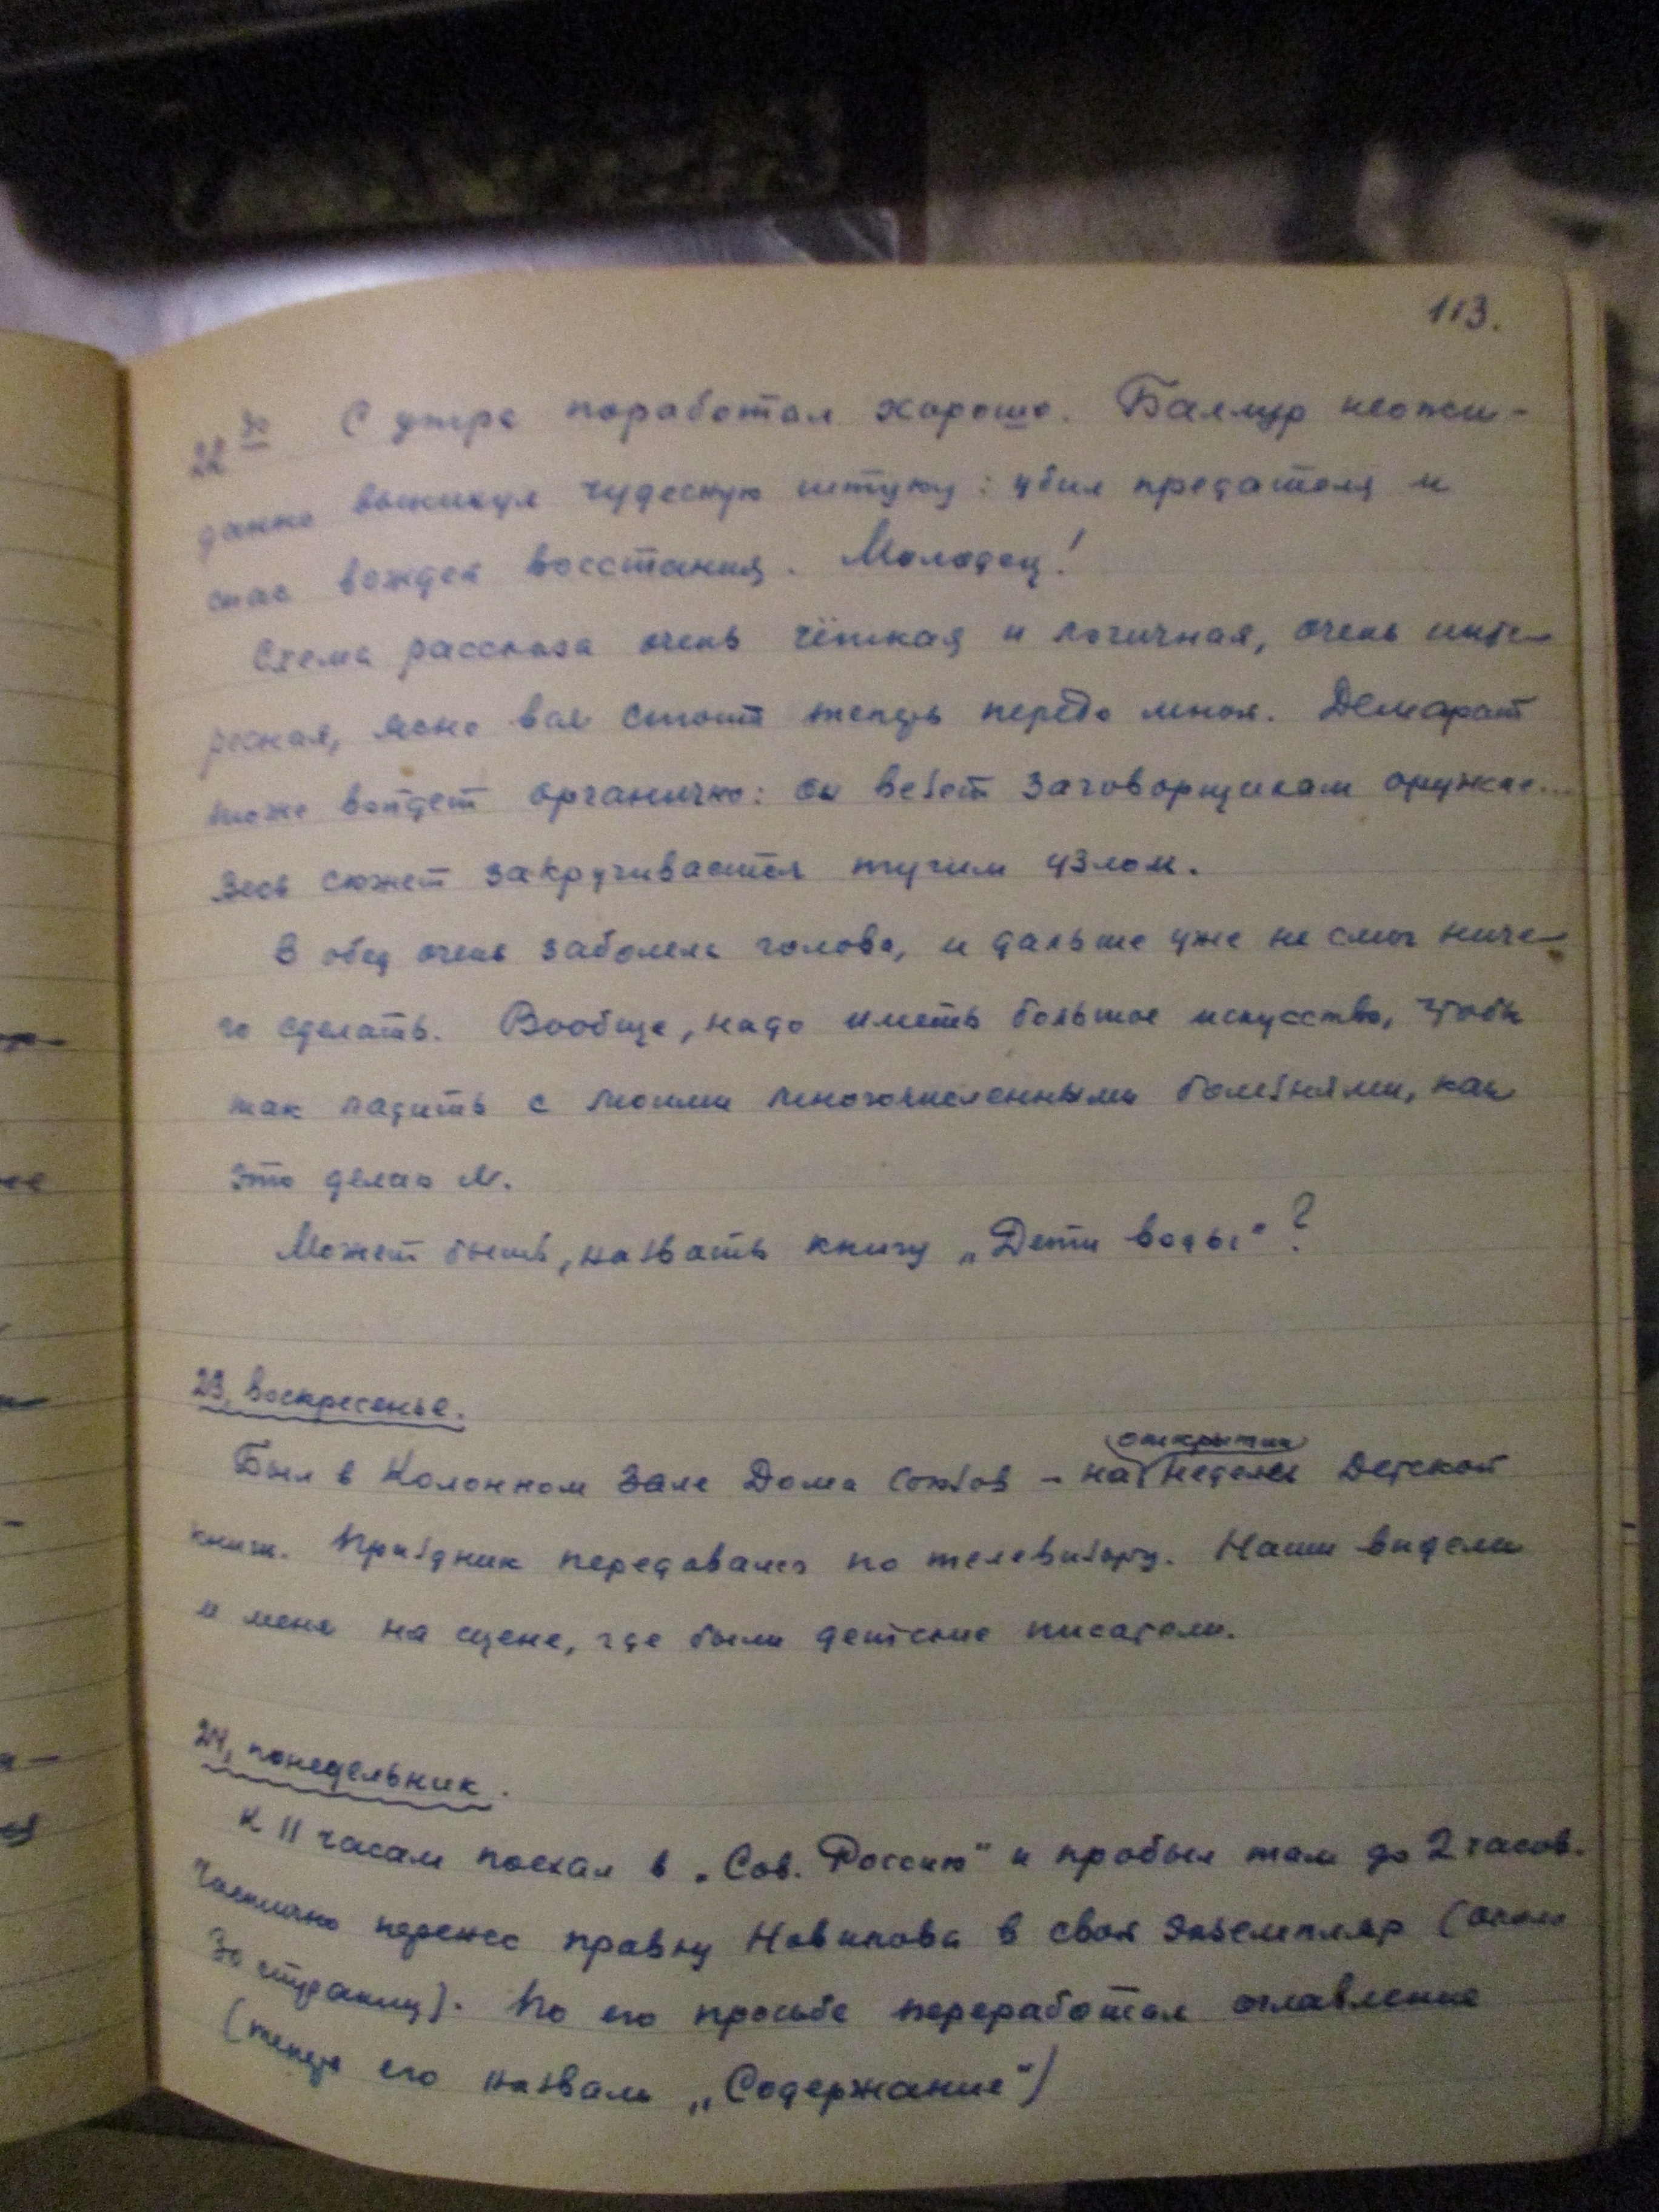 113.
22 30 С утра поработал хорошо. Баллур неожи-
данно выкинул чудесную штуку: убил предателя и
спас вождей восстания. Молодец!
Схема рассказа очень чёткая и логичная, очень инте-
ресная, ясно вся стоит теперь передо мной. Демарат
тоже войдет органично: он везет заговорщикам оружие...
Весь сюжет закручивается тугим узлом.
В обед очень заболела голова, и дальше уже не смог ниче-
го сделать. Вообще, надо иметь большое искусство, чтобы
так ладить с моими многочисленными болезнями, как
это делаю я.
Может быть, назвать книгу „Дети воды"?
23, воскресенье.
открытии
Был в Колонном зале Дома Союзов - на Недели Детской
книги. Праздник передавался по телевизору. Наши видели
и меня на сцене, где были детские писатели.
24, понедельник.
К 11 часам поехал в „Сов. Россию" и пробыл там до 2 часов.
Частично перенес правку Новикова в свой экземпляр (около
30 страниц). По его просьбе переработал оглавление
(теперь его назвали „Содержание")